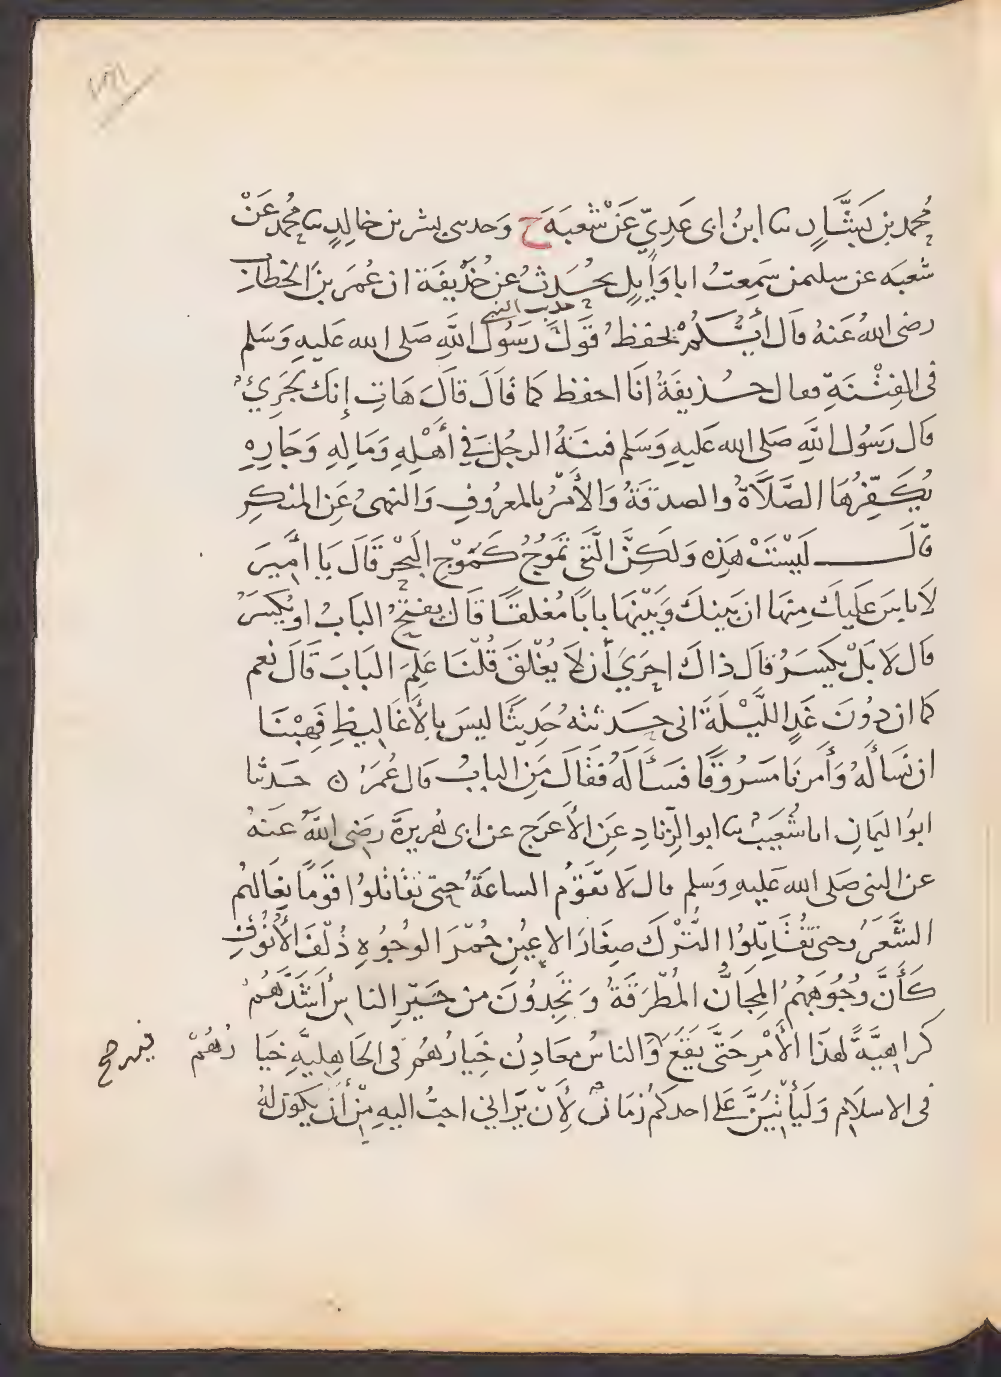 مُحمد بن بَشَّارٍ سا ابنُ ابى عَدِيٍّ عَنْ شُعبَةَ ح وَحدسى بشر بن خالِدٍ سا مُحمد عَنْ
شُعبَه عن سليمن سَمِعتُ ابا وَايِلٍ يحُدِّثُ عن حُذَيفَة ان عُمَرَ بنَ الخطابِ
حديث النبى
رضى اللهُ عَنهُ قال أَيُّكُمْ يحفظُ قَوْلَ رَسُولِ اللهِ صَلى الله عَليهِ وَسَلم
فى الفِتْنَةِ فقال حُذيفَةُ انَا احفظ كما قَالَ قالَ هَاتِ إنكَ لجَرِيءٌ
قال رَسُول اللهِ صَلى الله عَليهِ وَسَلم فتنَةُ الرجُلِ فى أَهْلِهِ وَمَالِهِ وَجَارِهِ
يُكَفِّرُهَا الصَّلَاةُ والصدقَةُ وَالأَمْرُ بالمعرُوفِ وَالنهىُ عَنِ المنكرِ
قَالَ لَيْسَتْ هَذِه وَلكِنَّ الّتى تمَوُجُ كَمَوْجِ البَحْرِ قَالَ يَا اميرَ
لَا باسَ عَليكَ مِنهَا ان بَينكَ وَبَيْنهَا بابًا مُغلقًا قَالَ يفتحُ البَابُ او يُكْسَرُ
قال لَا بَلْ يكسَرُ قال ذاكَ احرَى أن لَا يُغْلَقَ قُلْنَا عَلِمَ البَابَ قَالَ نعم
كما ان دُونَ غَدٍ اللَّيْلَةَ انى حدثتهُ حَدِيثًا ليسَ بالأَغَاليطِ فَهِبْنَا
ان نَسأَلَهُ وَأَمرنَا مَسرُوقًا فسَأَلَهُ فقَالَ مَنِ البابُ قال عُمَرُ ن حدثنا
ابوُ اليَمانِ انا شُعَيبٌ سا ابو الزِّنادِ عَنِ الأعرَجِ عن ابى هُريرةَ رضى اللهُ عَنهُ
عن النبى صَلى الله عَليهِ وَسَلم قال لَا تقَوُم الساعَةُ حتى تقاتلُوا قوَمًا نِعَالهُم
الشَّعَرُ وحتى تُقَاتِلُوا التُّرْكَ صِغَارَ الاعيُنِ حُمْرَ الوجُوهِ ذُلْفَ الأُنُوفِ
كَأَنَّ وُجُوهَهُمُ المِجَانُّ المُطْرَقَةُ وَتجِدُونَ من خَيْرِ الناسِ أَشَدَّهُمْ
كراهِيَةً لهذَا الأَمْرِ حَتَّى يَقَعَ وَالناسُ معَادِنُ خِيَارُهُمْ فى الجَاهِليَّةِ خيَارُهُمْ
فيه صح
فى الاسلَامِ وَلَيَأْتِيَنَّ عَلَى احدكمُ زمَانٌ لأَنْ يَرَانِي احبُّ اليهِ مِنْ أَنْ يكوُنَ لهُ